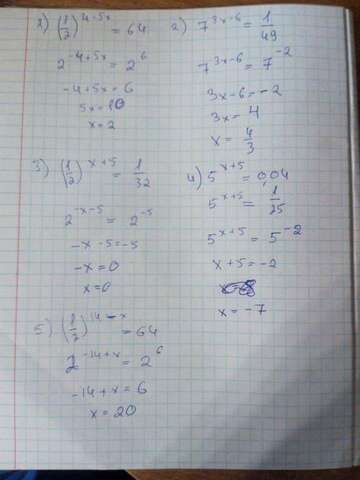 1) (1/2)^(4-5x) = 64
2^(-4+5x) = 2^6
-4+5x = 6
5x = 10
x = 2
2) 7^(3x-6) = 1/49
7^(3x-6) = 7^(-2)
3x-6 = -2
3x = 4
x = 4/3
3) (1/2)^(x+5) = 1/32
2^(-x-5) = 2^(-5)
-x-5 = -5
-x = 0
x = 0
4) 5^(x+5) = 0,04
5^(x+5) = 1/25
5^(x+5) = 5^(-2)
x+5 = -2
x = -7
5) (1/2)^(14-x) = 64
2^(-14+x) = 2^6
-14+x = 6
x = 20